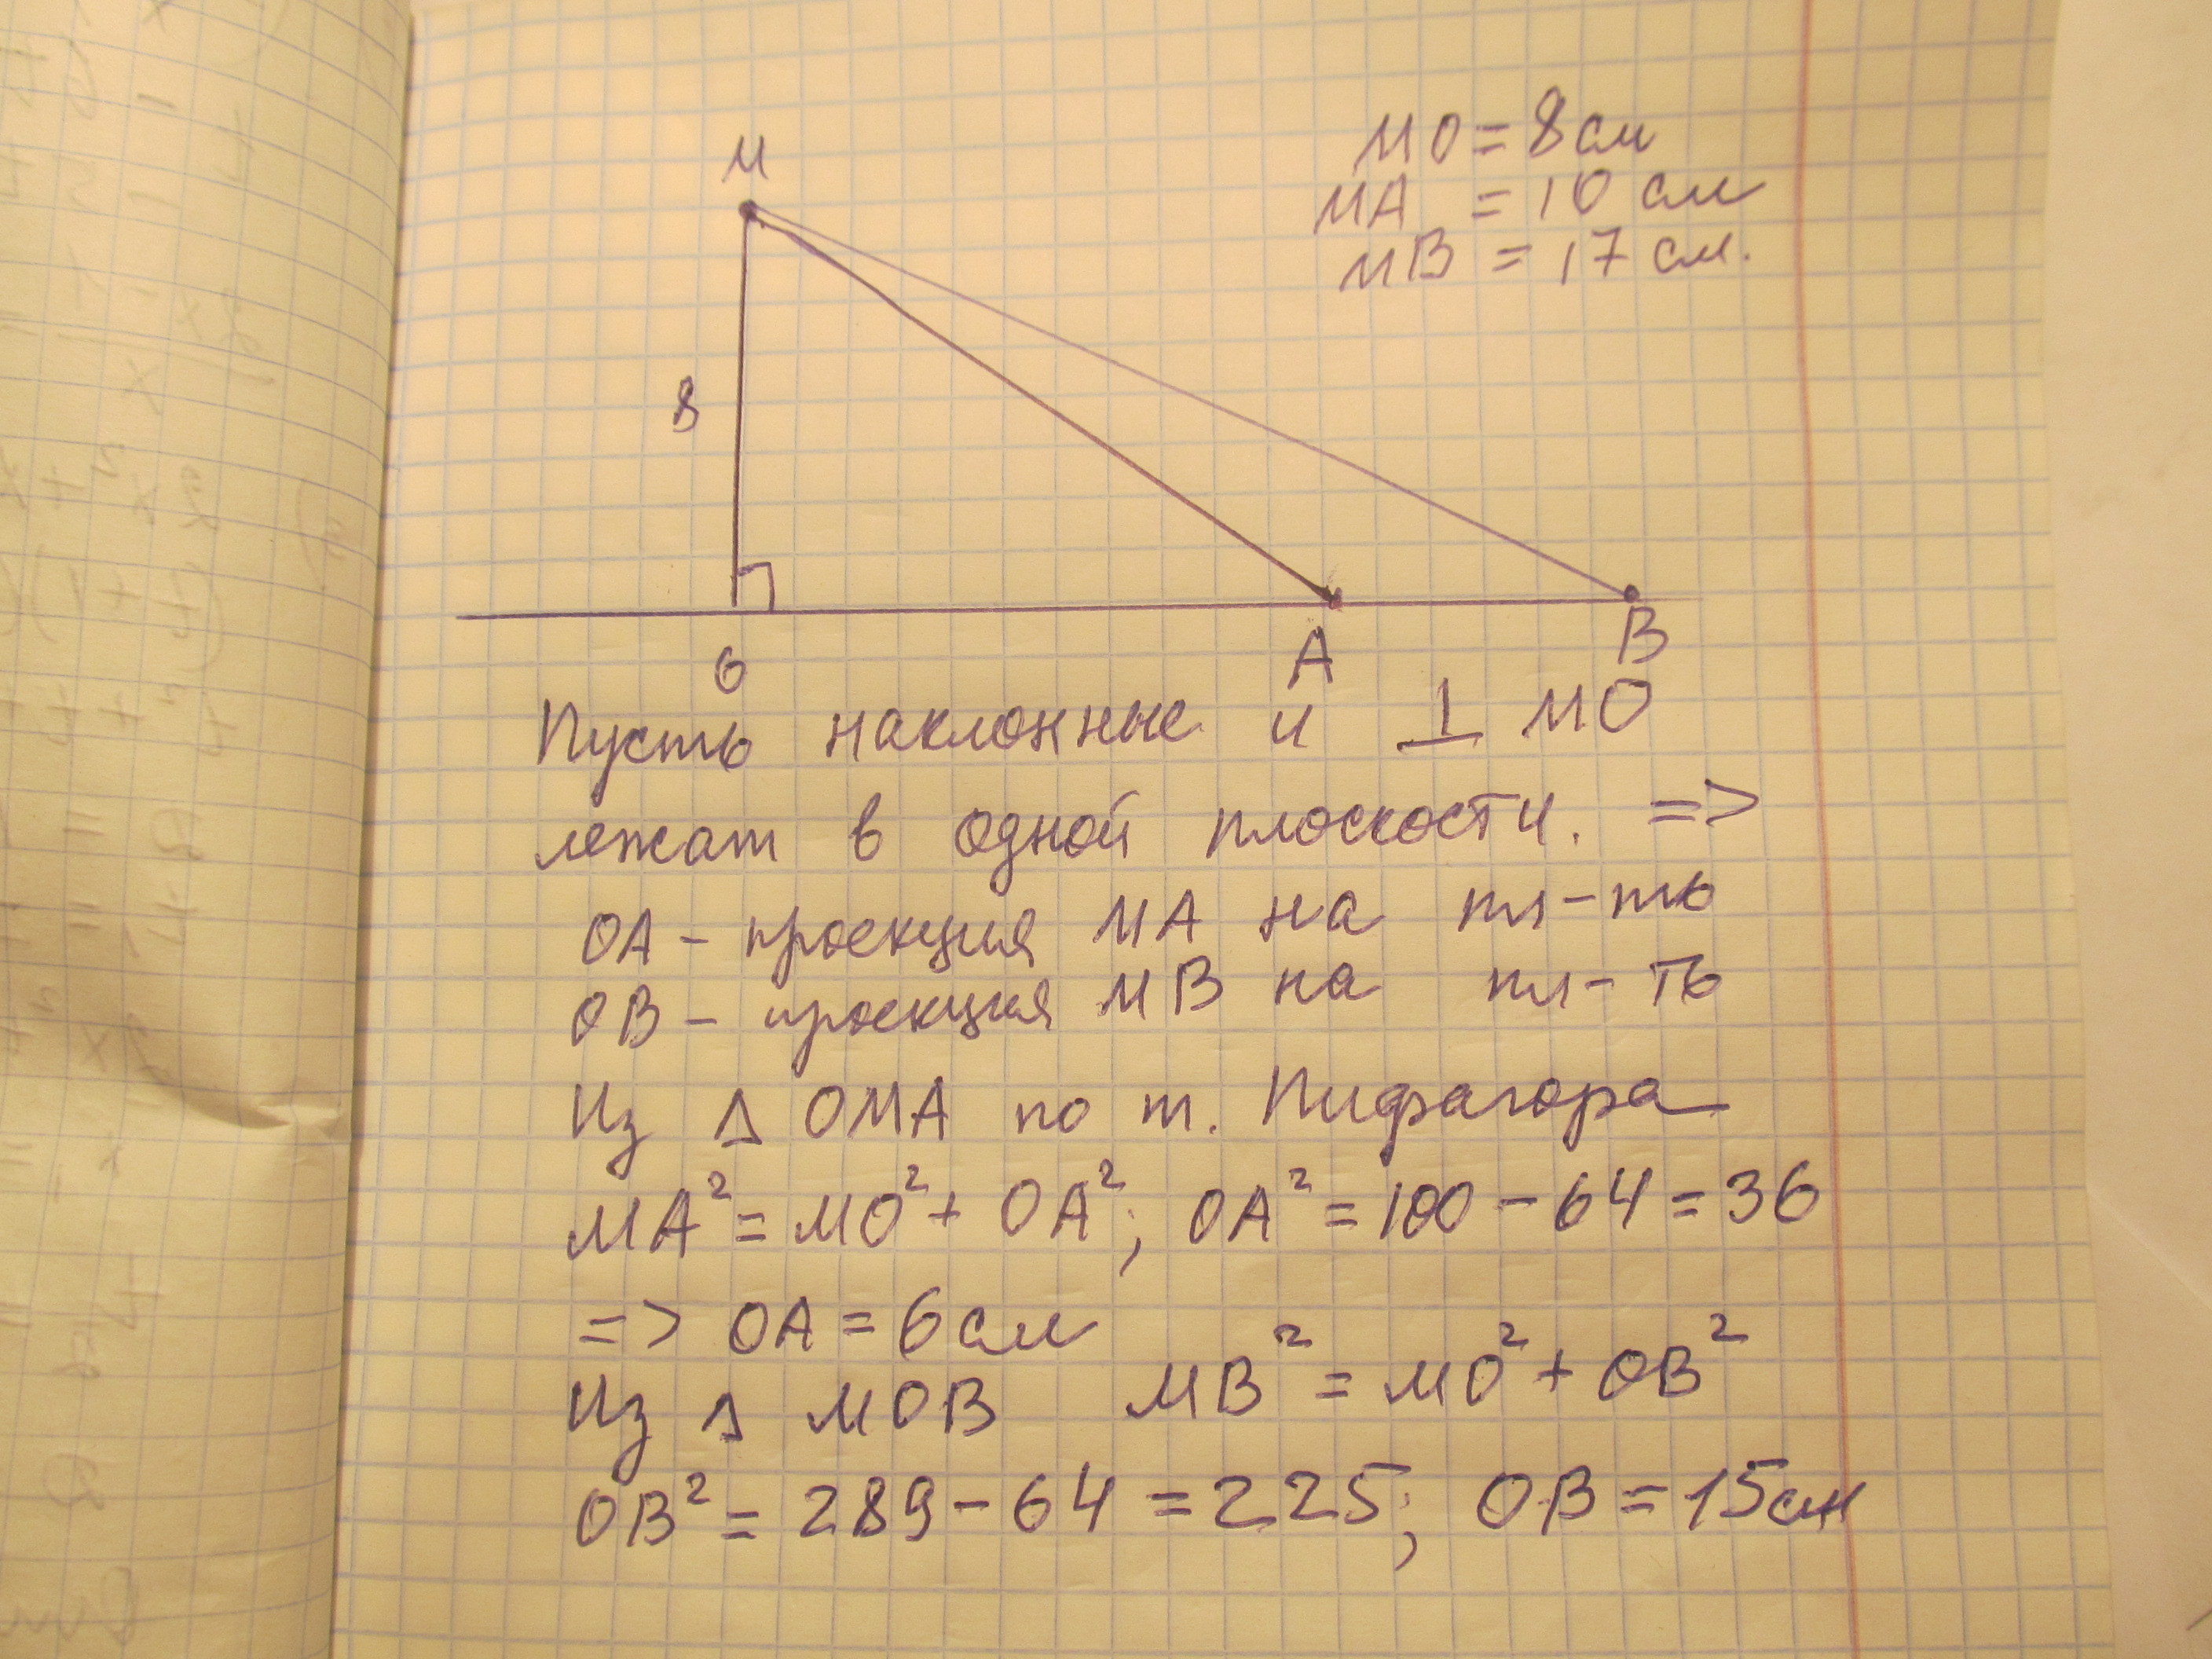 MO = 8 см
MA = 10 см
MB = 17 см.
M
8
O
A
B
Пусть наклонные и ⊥ MO
лежат в одной плоскости. =>
OA - проекция MA на пл-ть
OB - проекция MB на пл-ть
Из Δ OMA по т. Пифагора
MA² = MO² + OA²; OA² = 100 - 64 = 36
=> OA = 6 см
Из Δ MOB MB² = MO² + OB²
OB² = 289 - 64 = 225; OB = 15 см